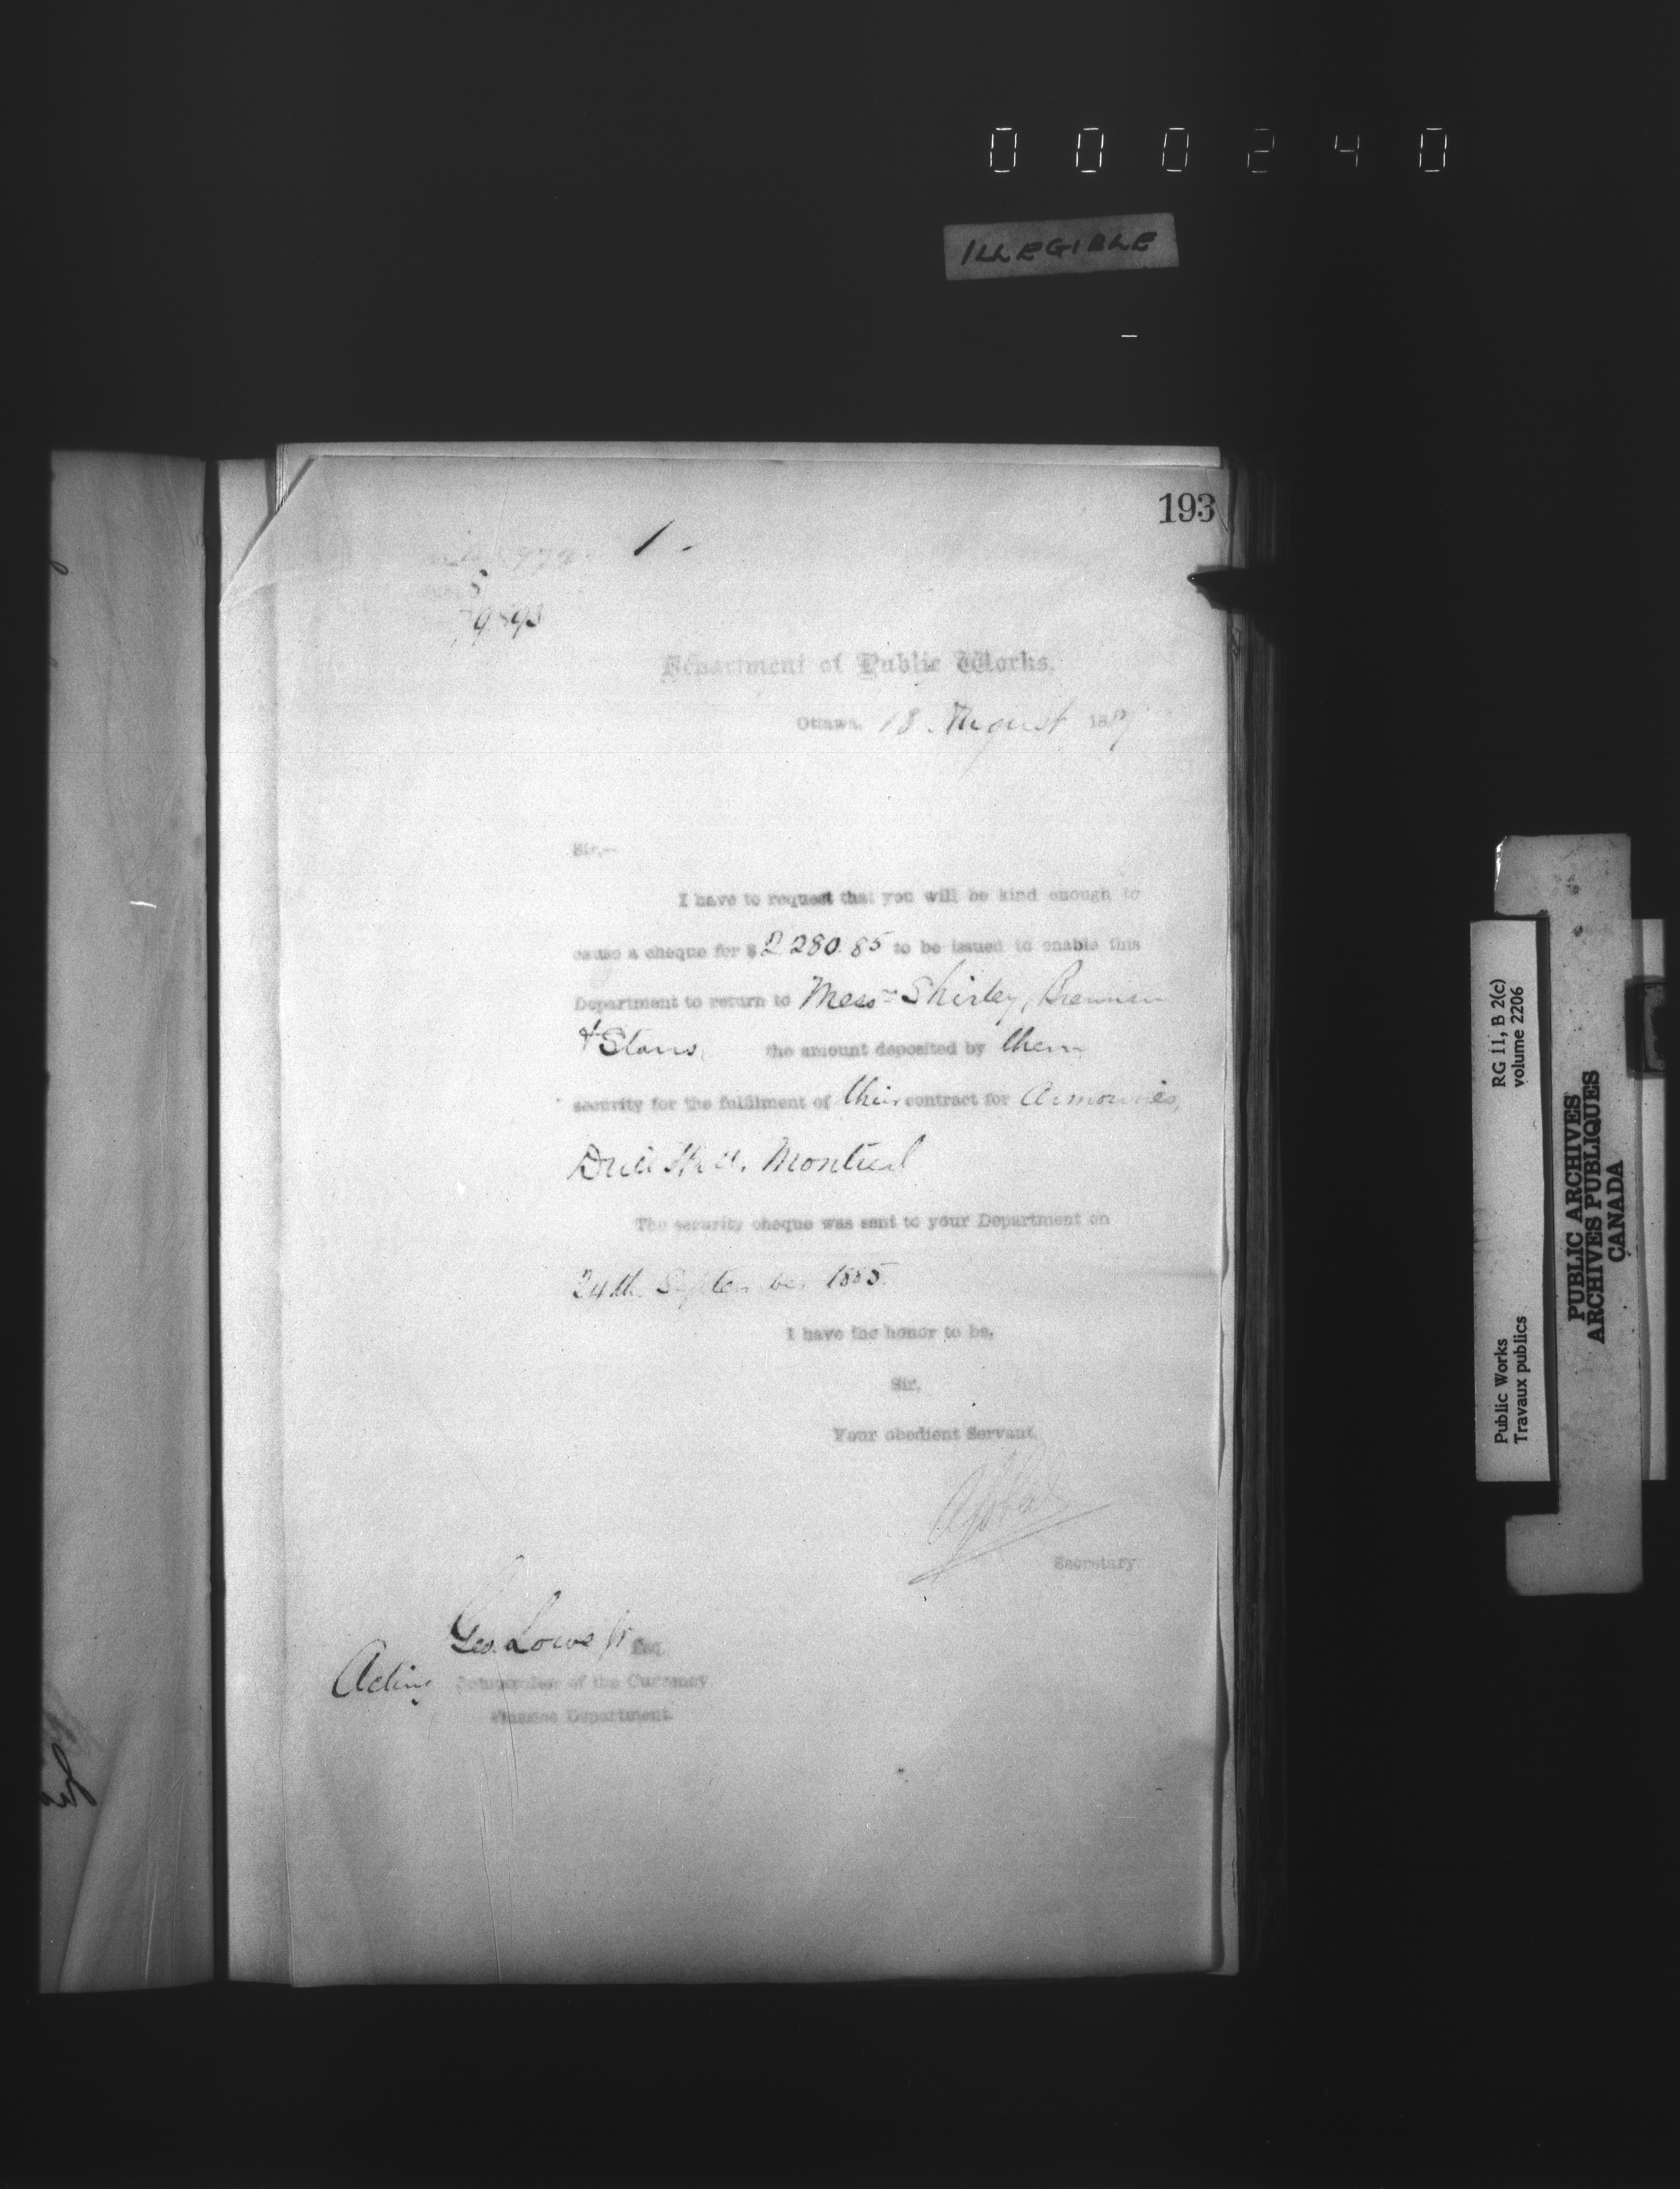 000240
ILLEGIBLE
193
1.
Department of Public Works.
Ottawa, 18. August 188
Sir,—
I have to request that you will be kind enough to
cause a cheque for $ 2280.85 to be issued to enable this
Department to return to Messrs Shirley, Brennan
& the amount deposited by them
security for the fulfilment of their contract for Armouries,
Drill Hall, Montreal
The security cheque was sent to your Department on
24th. September 1885.
I have the honor to be,
Sir,
Your obedient Servant,
Secretary
Geo. Lowe Jr Esq.
Acting Comptroller of the Currency
Finance Department.
RG 11, B 2(c)
volume 2206
Public Works
Travaux publics
PUBLIC ARCHIVES
ARCHIVES PUBLIQUES
CANADA